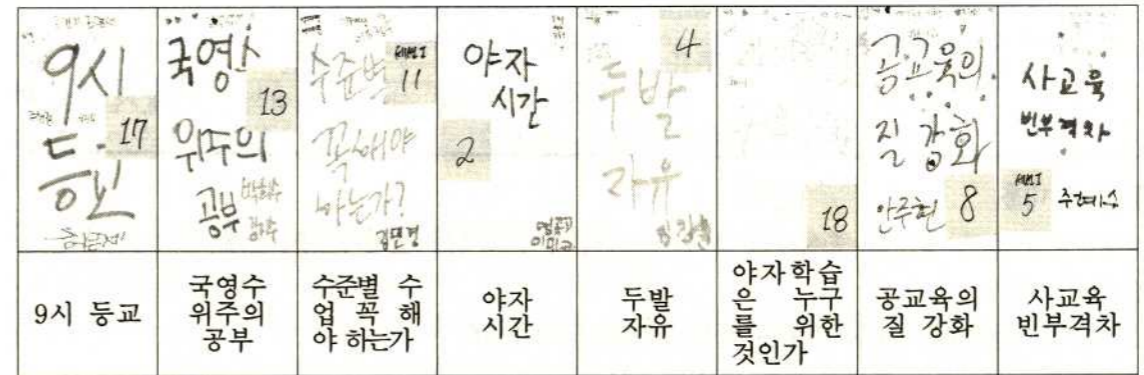 9시
등교
17
국영수
13
위주의
공부
수준별
세션I
11
꼭 해야
하는가?
김민경
야자
시간
2
4
두발
자유
18
공교육의
질 강화
안주현 8
사교육
빈부격차
세션I
5
9시 등교
국영수
위주의
공부
수준별 수
업 꼭 해
야 하는가
야자
시간
두발
자유
야자학습
은 누구
를 위한
것인가
공교육의
질 강화
사교육
빈부격차